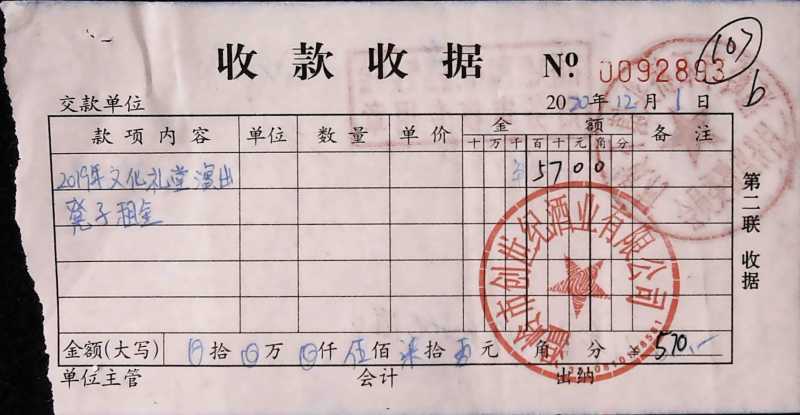 收款收据 № 0092893
(107)
b
交款单位 2020年12月1日
款项内容 单位 数量 单价 金额 备注
十万千百十元角分
2019年文化礼堂演出 5700
凳子租金
第二联 收据
市创世纪酒业有限公司
金额(大写) 拾 万 仟伍佰柒拾 元 角 分 570.—
单位主管 会计 出纳